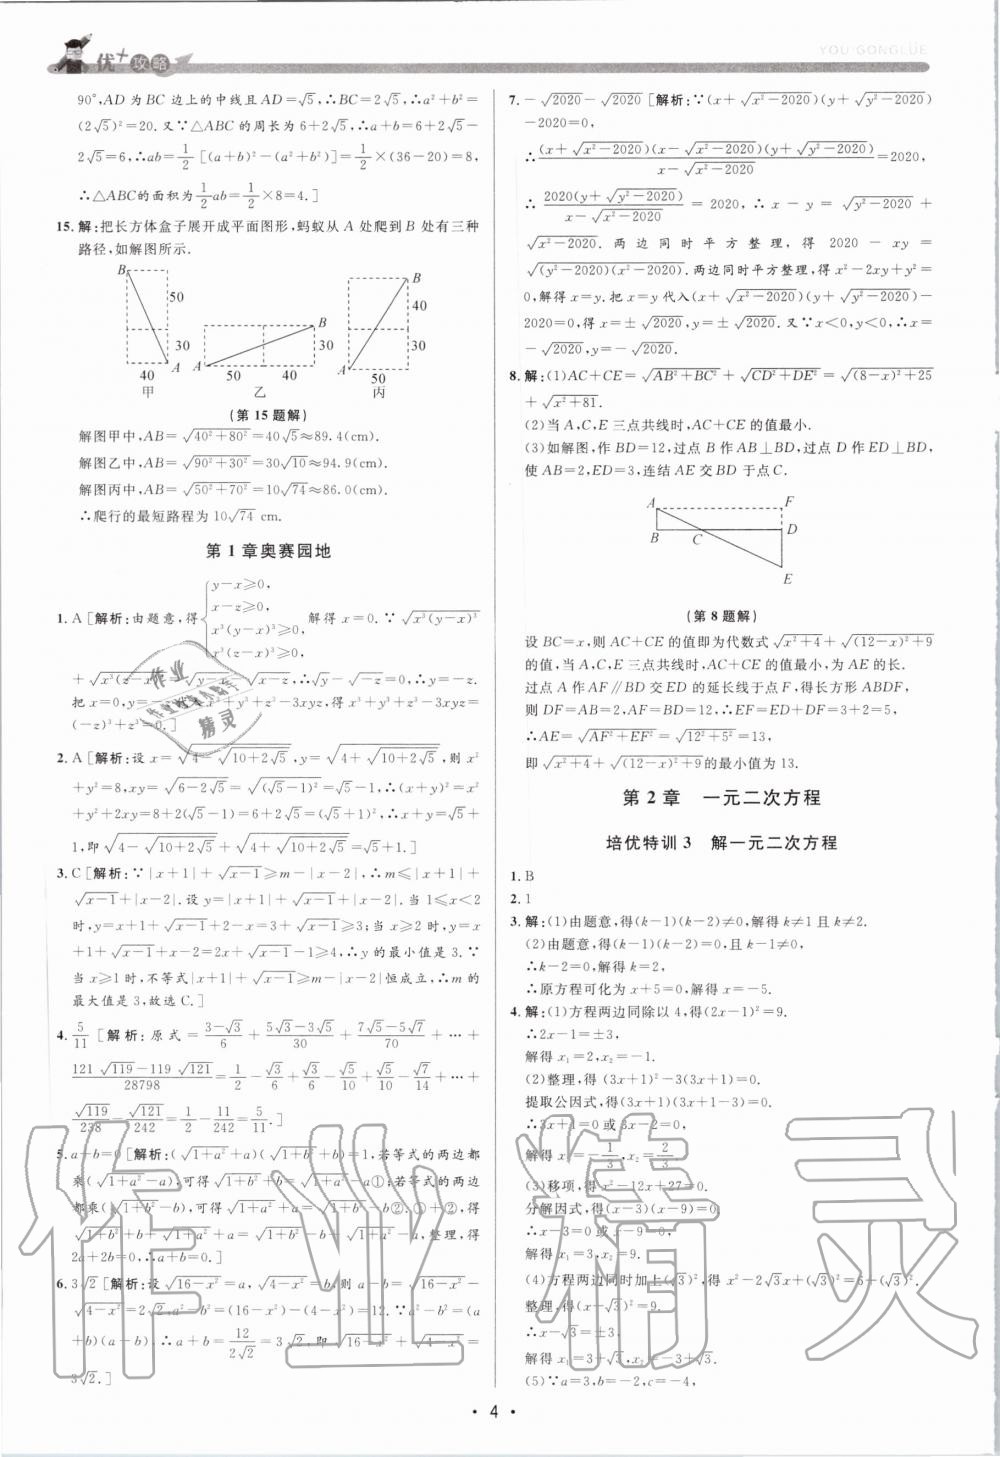 优+攻略
YOU GONGLÜE
90°,AD为BC边上的中线且AD=√5,∴BC=2√5,∴a²+b²=
(2√5)²=20.又∵△ABC的周长为6+2√5,∴a+b=6+2√5-
2√5=6,∴ab=1/2[(a+b)²-(a²+b²)]=1/2×(36-20)=8,
∴△ABC的面积为1/2ab=1/2×8=4.]
15.解:把长方体盒子展开成平面图形,蚂蚁从A处爬到B处有三种
路径,如解图所示.
B 50 30 A 40 甲
B 30 A 50 40 乙
B 40 30 A 50 丙
(第15题解)
解图甲中,AB=√(40²+80²)=40√5≈89.4(cm).
解图乙中,AB=√(90²+30²)=30√10≈94.9(cm).
解图丙中,AB=√(50²+70²)=10√74≈86.0(cm).
∴爬行的最短路程为10√74 cm.
第1章奥赛园地
1.A[解析:由题意,得{y-x≥0, x-z≥0, x³(y-x)³≥0, x³(z-x)³≥0, 解得x=0.∵√(x³(y-x)³)
+√(x³(z-x)³)=√(y-x)-√(x-z),∴√y=√(-z),∴y=-z.
把x=0,y=-z代入x³+y³+z³-3xyz,得x³+y³+z³-3xyz=
(-z)³+z³=0.]
2.A[解析:设x=√(4-√(10+2√5)),y=√(4+√(10+2√5)),则x²
+y²=8,xy=√(6-2√5)=√((√5-1)²)=√5-1,∴(x+y)²=x²
+y²+2xy=8+2(√5-1)=6+2√5=(√5+1)²,∴x+y=√5+
1,即√(4-√(10+2√5))+√(4+√(10+2√5))=√5+1.]
3.C[解析:∵|x+1|+√(x-1)≥m-|x-2|,∴m≤|x+1|+
√(x-1)+|x-2|.设y=|x+1|+√(x-1)+|x-2|.当1≤x<2
时,y=x+1+√(x-1)+2-x=3+√(x-1)≥3;当x≥2时,y=x
+1+√(x-1)+x-2=2x+√(x-1)-1≥4;∴y的最小值是3.∵
当x≥1时,不等式|x+1|+√(x-1)≥m-|x-2|恒成立,∴m的
最大值是3,故选C.]
4.5/11[解析:原式=(3-√3)/6+(5√3-3√5)/30+(7√5-5√7)/70+…+
(121√119-119√121)/28798=1/2-√3/6+√3/6-√5/10+√5/10-√7/14+…+
√119/238-√121/242=1/2-11/242=5/11.]
5.a+b=0[解析:(√(1+a²)+a)(√(1+b²)+b)=1,若等式的两边都
乘(√(1+a²)-a),可得√(1+b²)+b=√(1+a²)-a①;若等式的两边
都乘(√(1+b²)-b),可得√(1+a²)+a=√(1+b²)-b②.①+②,得
√(1+b²)+b+√(1+a²)+a=√(1+a²)-a+√(1+b²)-b,整理,得
2a+2b=0,∴a+b=0.]
6.3√2[解析:设√(16-x²)=a,√(4-x²)=b,则a-b=√(16-x²)-
√(4-x²)=2√2,a²-b²=(16-x²)-(4-x²)=12.∵a²-b²=(a
+b)(a-b),∴a+b=12/(2√2)=3√2,即√(16-x²)+√(4-x²)=
3√2.]
7.-√2020 -√2020[解析:∵(x+√(x²-2020))(y+√(y²-2020))
-2020=0,
∴(x+√(x²-2020))(x-√(x²-2020))(y+√(y²-2020))/(x-√(x²-2020))=2020,
∴2020(y+√(y²-2020))/(x-√(x²-2020))=2020,∴x-y=√(y²-2020)+
√(x²-2020).两边同时平方整理,得2020-xy=
√((y²-2020)(x²-2020)).两边同时平方整理,得x²-2xy+y²=
0,解得x=y.把x=y代入(x+√(x²-2020))(y+√(y²-2020))-
2020=0,得x=±√2020,y=±√2020.又∵x<0,y<0,∴x=
-√2020,y=-√2020.
8.解:(1)AC+CE=√(AB²+BC²)+√(CD²+DE²)=√((8-x)²+25)
+√(x²+81).
(2)当A,C,E三点共线时,AC+CE的值最小.
(3)如解图,作BD=12,过点B作AB⊥BD,过点D作ED⊥BD,
使AB=2,ED=3,连结AE交BD于点C.
A F B C D E
(第8题解)
设BC=x,则AC+CE的值即为代数式√(x²+4)+√((12-x)²+9)
的值,当A,C,E三点共线时,代数式的值最小,为AE的长.
过点A作AF∥BD交ED的延长线于点F,得长方形ABDF,
则DF=AB=2,AF=BD=12,∴EF=ED+DF=3+2=5,
∴AE=√(AF²+EF²)=√(12²+5²)=13,
即√(x²+4)+√((12-x)²+9)的最小值为13.
第2章 一元二次方程
培优特训3 解一元二次方程
1.B
2.1
3.解:(1)由题意,得(k-1)(k-2)≠0,解得k≠1且k≠2.
(2)由题意,得(k-1)(k-2)=0,且k-1≠0,
∴k-2=0,解得k=2,
∴原方程可化为x+5=0,解得x=-5.
4.解:(1)方程两边同除以4,得(2x-1)²=9.
∴2x-1=±3,
解得x₁=2,x₂=-1.
(2)整理,得(3x+1)²-3(3x+1)=0.
提取公因式,得(3x+1)(3x+1-3)=0.
∴3x+1=0或3x-2=0.
解得x₁=-1/3,x₂=2/3.
(3)移项,得x²-12x+27=0.
分解因式,得(x-3)(x-9)=0.
∴x-3=0或x-9=0.
解得x₁=3,x₂=9.
(4)方程两边同时加上(√3)²,得x²-2√3x+(√3)²=6+(√3)².
整理,得(x-√3)²=9.
∴x-√3=±3,
解得x₁=3+√3,x₂=-3+√3.
(5)∵a=3,b=-2,c=-4,
·4·
作业精灵